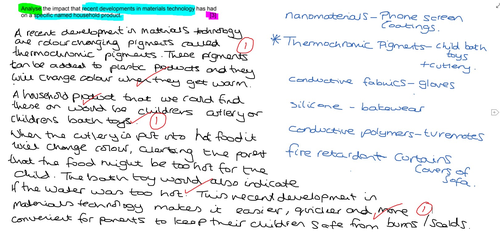 Analyse the impact that recent developments in materials technology has had
on a specific named household product. [3]
A recent development in materials technology
are colour changing pigments called
thermochromic pigments. These pigments
can be added to plastic products and they
will change colour when they get warm.
A household product that we could find
these on would be childrens cutlery or
childrens bath toys.
When the cutlery is put into hot food it
will change colour, alerting the parent
that the food might be too hot for the
child. The bath toy would also indicate
if the water was too hot. This recent development in
materials technology makes it easier, quicker and more
convenient for parents to keep their children safe from burns / scalds.
1
1
1
nanomaterials - Phone screen
coatings.
* Thermochromic Pigments - child bath
toys
+ cutlery.
conductive fabrics - gloves
silicone - bakeware
conductive polymers - tv remotes
fire retardant - Curtains
Covers of
Sofa.